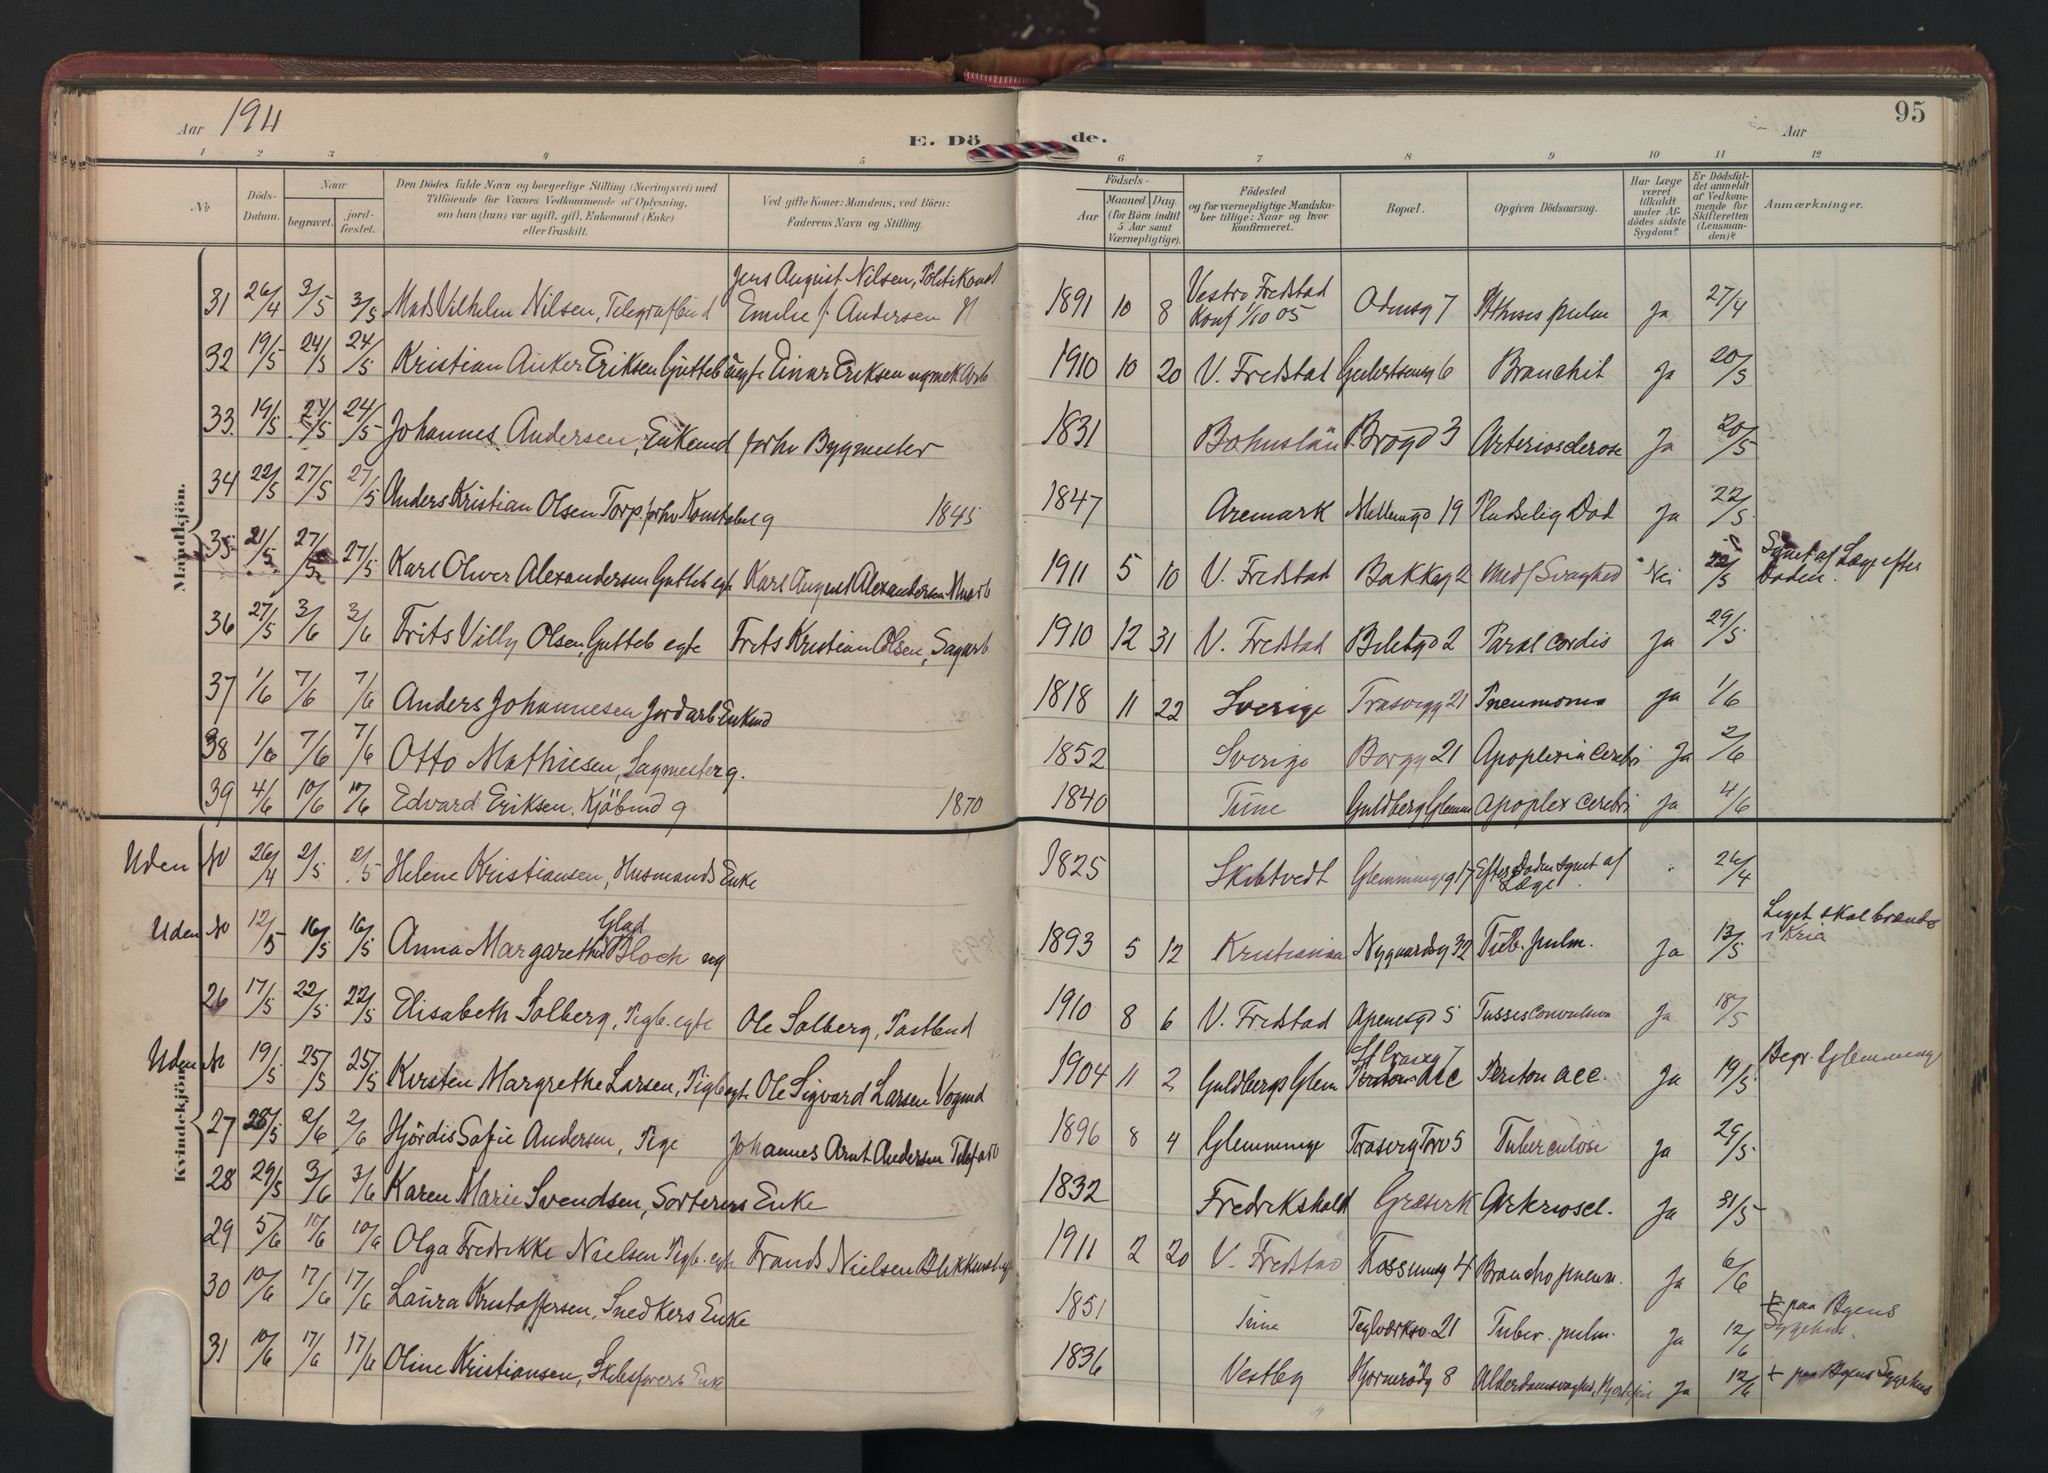 Aar 1911
E. Dö de.
Aar
95
1 2 3 4 5 6 7 8 9 10 11 12
№
Döds-Datum.
Naar
begravet.
jord-fæstet.
Den Dödes fulde Navn og borgerlige Stilling (Næringsvei) med
Tilföiende for Voxnes Vedkommende af Oplysning,
om han (hun) var ugift, gift, Enkemand (Enke)
eller fraskilt.
Ved gifte Koner: Mandens, ved Börn:
Faderens Navn og Stilling.
Födsels-
Aar
Maaned. Dag.
(for Börn indtil
5 Aar samt
Værnepligtige).
Födested
og for værnepligtige Mandska-
ber tillige: Naar og hvor
konfirmeret.
Bopæl.
Opgiven Dödsaarsag.
Har Læge
været
tilkaldt
under Af-
dödes sidste
Sygdom?
Er Dödsfal-
det anmeldt
af Vedkom-
mende for
Skifteretten
(Lensman-
den)?
Anmærkninger.
Mandkjön.
31 26/4 3/5 3/5 Mads Vilhelm Nilsen, Jens August Nilsen, Emilie J. Andersen 1891 10 8 Vestre Fredstad Konf 1/10 05 7 pulm Ja 27/4
32 19/5 24/5 24/5 Kristian Anker Eriksen Gutteb egte Einar Eriksen 1910 10 20 V. Fredstad 6 Bronchit Ja 20/5
33 19/5 24/5 24/5 Johannes Andersen, Enkemd forhv Bygmester 1831 Bohuslän Brogd 3 Arteriosclerose Ja 20/5
34 22/5 27/5 27/5 Anders Kristian Olsen Torp, forhv Konstabel g 1845 1847 Aremark 19 Pludselig Död Ja 22/5
35 21/5 27/5 27/5 Karl Oliver Alexandersen Gutteb egte Karl August Alexandersen 1911 5 10 V. Fredstad Bakkeg 2 Medf Svaghed Nei 22/5 Synet af Læge efter Döden.
36 27/5 3/6 3/6 Frits Villy Olsen, Gutteb egte Frits Kristian Olsen, Sagarb 1910 12 31 V. Fredstad 2 Paral cordis Ja 29/5
37 1/6 7/6 7/6 Anders Johannesen Jordarb Enkmd 1818 11 22 Sverige 21 Pneumonia Ja 1/6
38 1/6 7/6 7/6 Otto Mathiesen, Sagmester g. 1852 Sverige Borgg 21 Apoplexia cerebri Ja 2/6
39 4/6 10/6 10/6 Edvard Eriksen, Kjöbmd g 1870 1840 Tune Guldberg Glemm Apoplex cerebri Ja 4/6
Kvindekjön.
Uden № 26/4 2/5 2/5 Helene Kristiansen, Husmands Enke 1825 Skibtvedt 17 Efter Döden synet af Læge 26/4
Uden № 12/5 16/5 16/5 Anna Margarethe Glad Bloch ug 1893 5 12 Kristiania Nygaardsg 32 Tub. pulm. Ja 13/5 Liget skal brændes i Kria
26 17/5 22/5 22/5 Elisabeth Solberg, Pigb. egte Ole Solberg, Postbud 1910 8 6 V. Fredstad Apenesgd 5 Tussis convulsiva Ja 18/5
Uden № 19/5 25/5 25/5 Kirsten Margrethe Larsen, Pigb egte Ole Sigvard Larsen Vognmd 1904 11 2 Guldbergs Glem 7 Periton acc. Ja 19/5 Begr. Glemminge
27 28/5 2/6 2/6 Hjördis Sofie Andersen, Pige Johannes Arnt Andersen 1896 8 4 Glemminge Torv 5 Tuberculose Ja 29/5
28 29/5 3/6 3/6 Karen Marie Svendsen, Sorterers Enke 1832 Fredrikshald Arterioscl. Ja 31/5
29 5/6 10/6 10/6 Olga Fredrikke Nielsen Pigb. egte Frands Nielsen 1911 2 20 V. Fredstad 4 Broncho pneum. Ja 6/6
30 10/6 17/6 17/6 Laura Kristoffersen, Snedkers Enke 1851 Tune Teglverksv. 21 Tuber. pulm. Ja 12/6 + paa Byens Sygehus.
31 10/6 17/6 17/6 Oline Kristiansen, Skibsförers Enke 1836 Vestby 8 Alderdomssvaghed, Ja 12/6 + paa Byens Sygehus